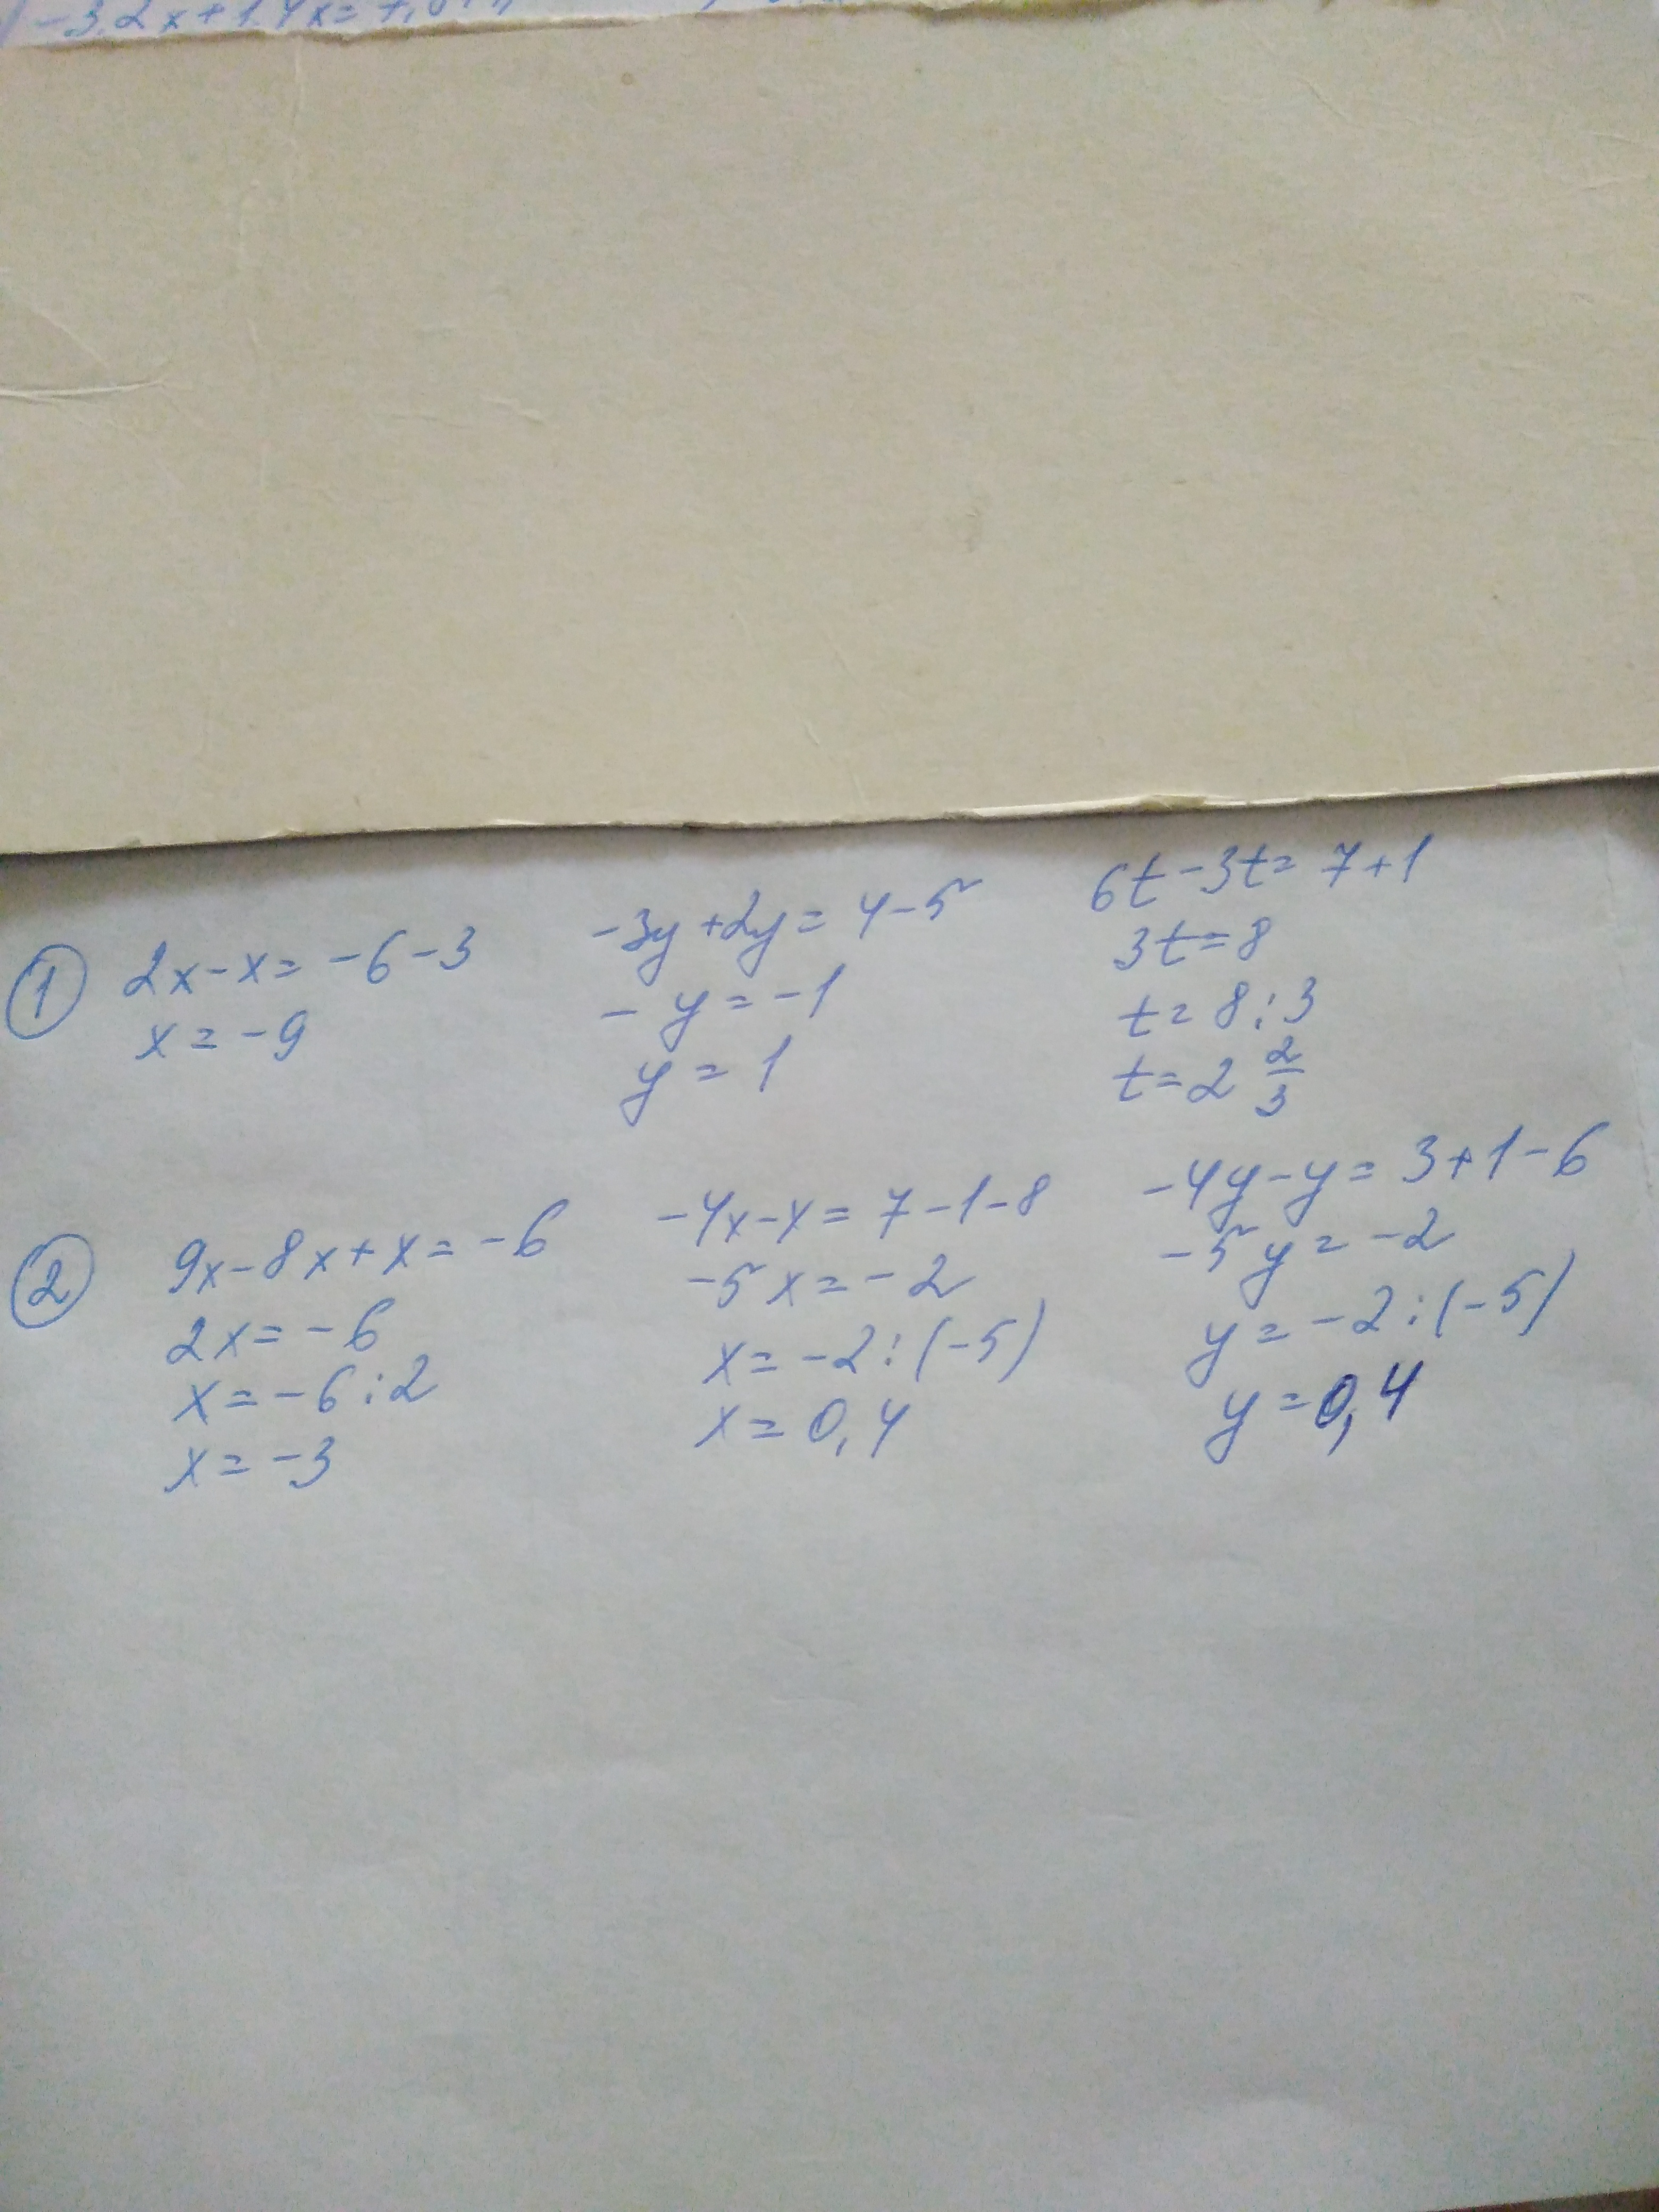 -3,2x+1,4x=
① 2x-x= -6-3
x= -9
-3y+2y= 4-5
- y= -1
y= 1
6t-3t= 7+1
3t=8
t= 8:3
t=2 2/3
② 9x-8x+x= -6
2x= -6
x= -6:2
x= -3
-4x-x= 7-1-8
-5x= -2
x= -2:(-5)
x= 0,4
-4y-y= 3+1-6
-5y= -2
y= -2:(-5)
y=0,4